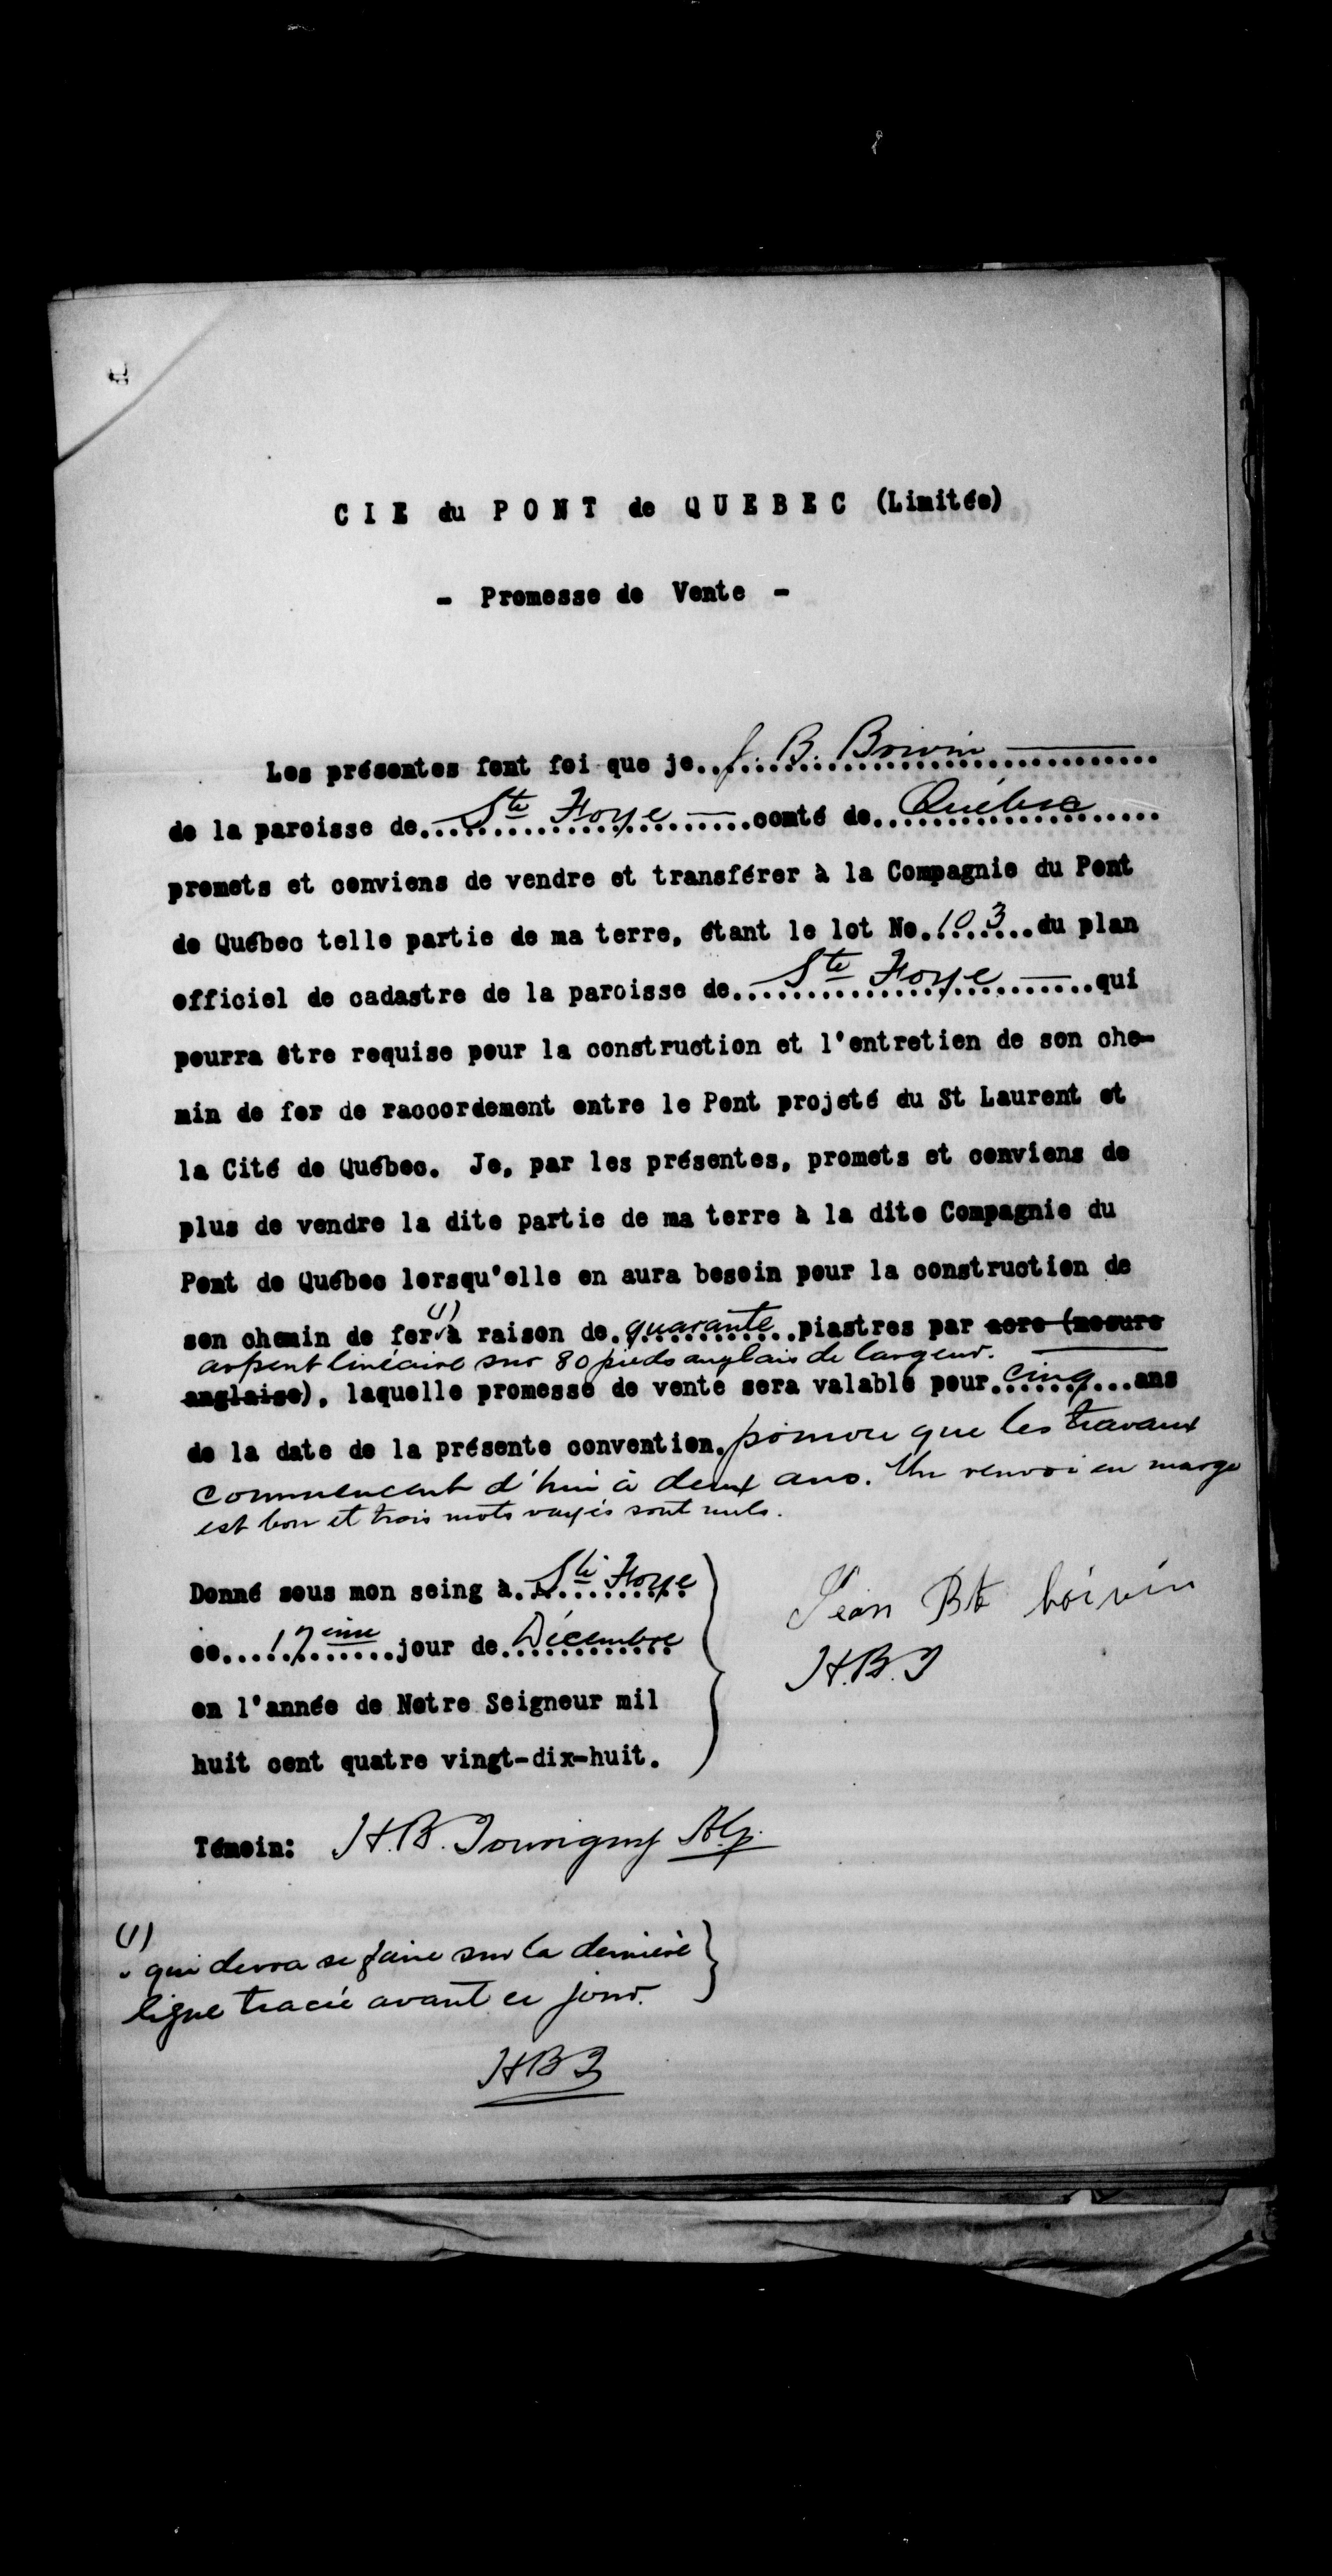 CIE du PONT de QUEBEC (Limitée)
- Promesse de Vente -
Les présentes font foi que je..J. B. Boivin
de la paroisse de...Ste Foye...comté de..Québec
promets et conviens de vendre et transférer à la Compagnie du Pont
de Québec telle partie de ma terre, étant le lot No.103...du plan
officiel de cadastre de la paroisse de...Ste Foye...qui
pourra être requise pour la construction et l'entretien de son che-
min de fer de raccordement entre le Pont projeté du St Laurent et
la Cité de Québec. Je, par les présentes, promets et conviens de
plus de vendre la dite partie de ma terre à la dite Compagnie du
Pont de Québec lorsqu'elle en aura besoin pour la construction de
(1)
son chemin de fer à raison de.quarante..piastres par acre (mesure
arpent linéaire sur 80 pieds anglais de largeur.
anglaise), laquelle promesse de vente sera valable pour.cinq...ans
de la date de la présente convention. pourvu que les travaux
commencent d'hui à deux ans. Un renvoi en marge
est bon et trois mots rayés sont nuls.
Donné sous mon seing à.Ste Foye
ce....17ème...jour de.Décembre
en l'année de Notre Seigneur mil
huit cent quatre vingt-dix-huit.
Jean Bte boivin
H.B.T
Témoin: H.B. Tourigny
(1)
qui devra se faire sur la dernière
ligne tracée avant ce jour.
HBT